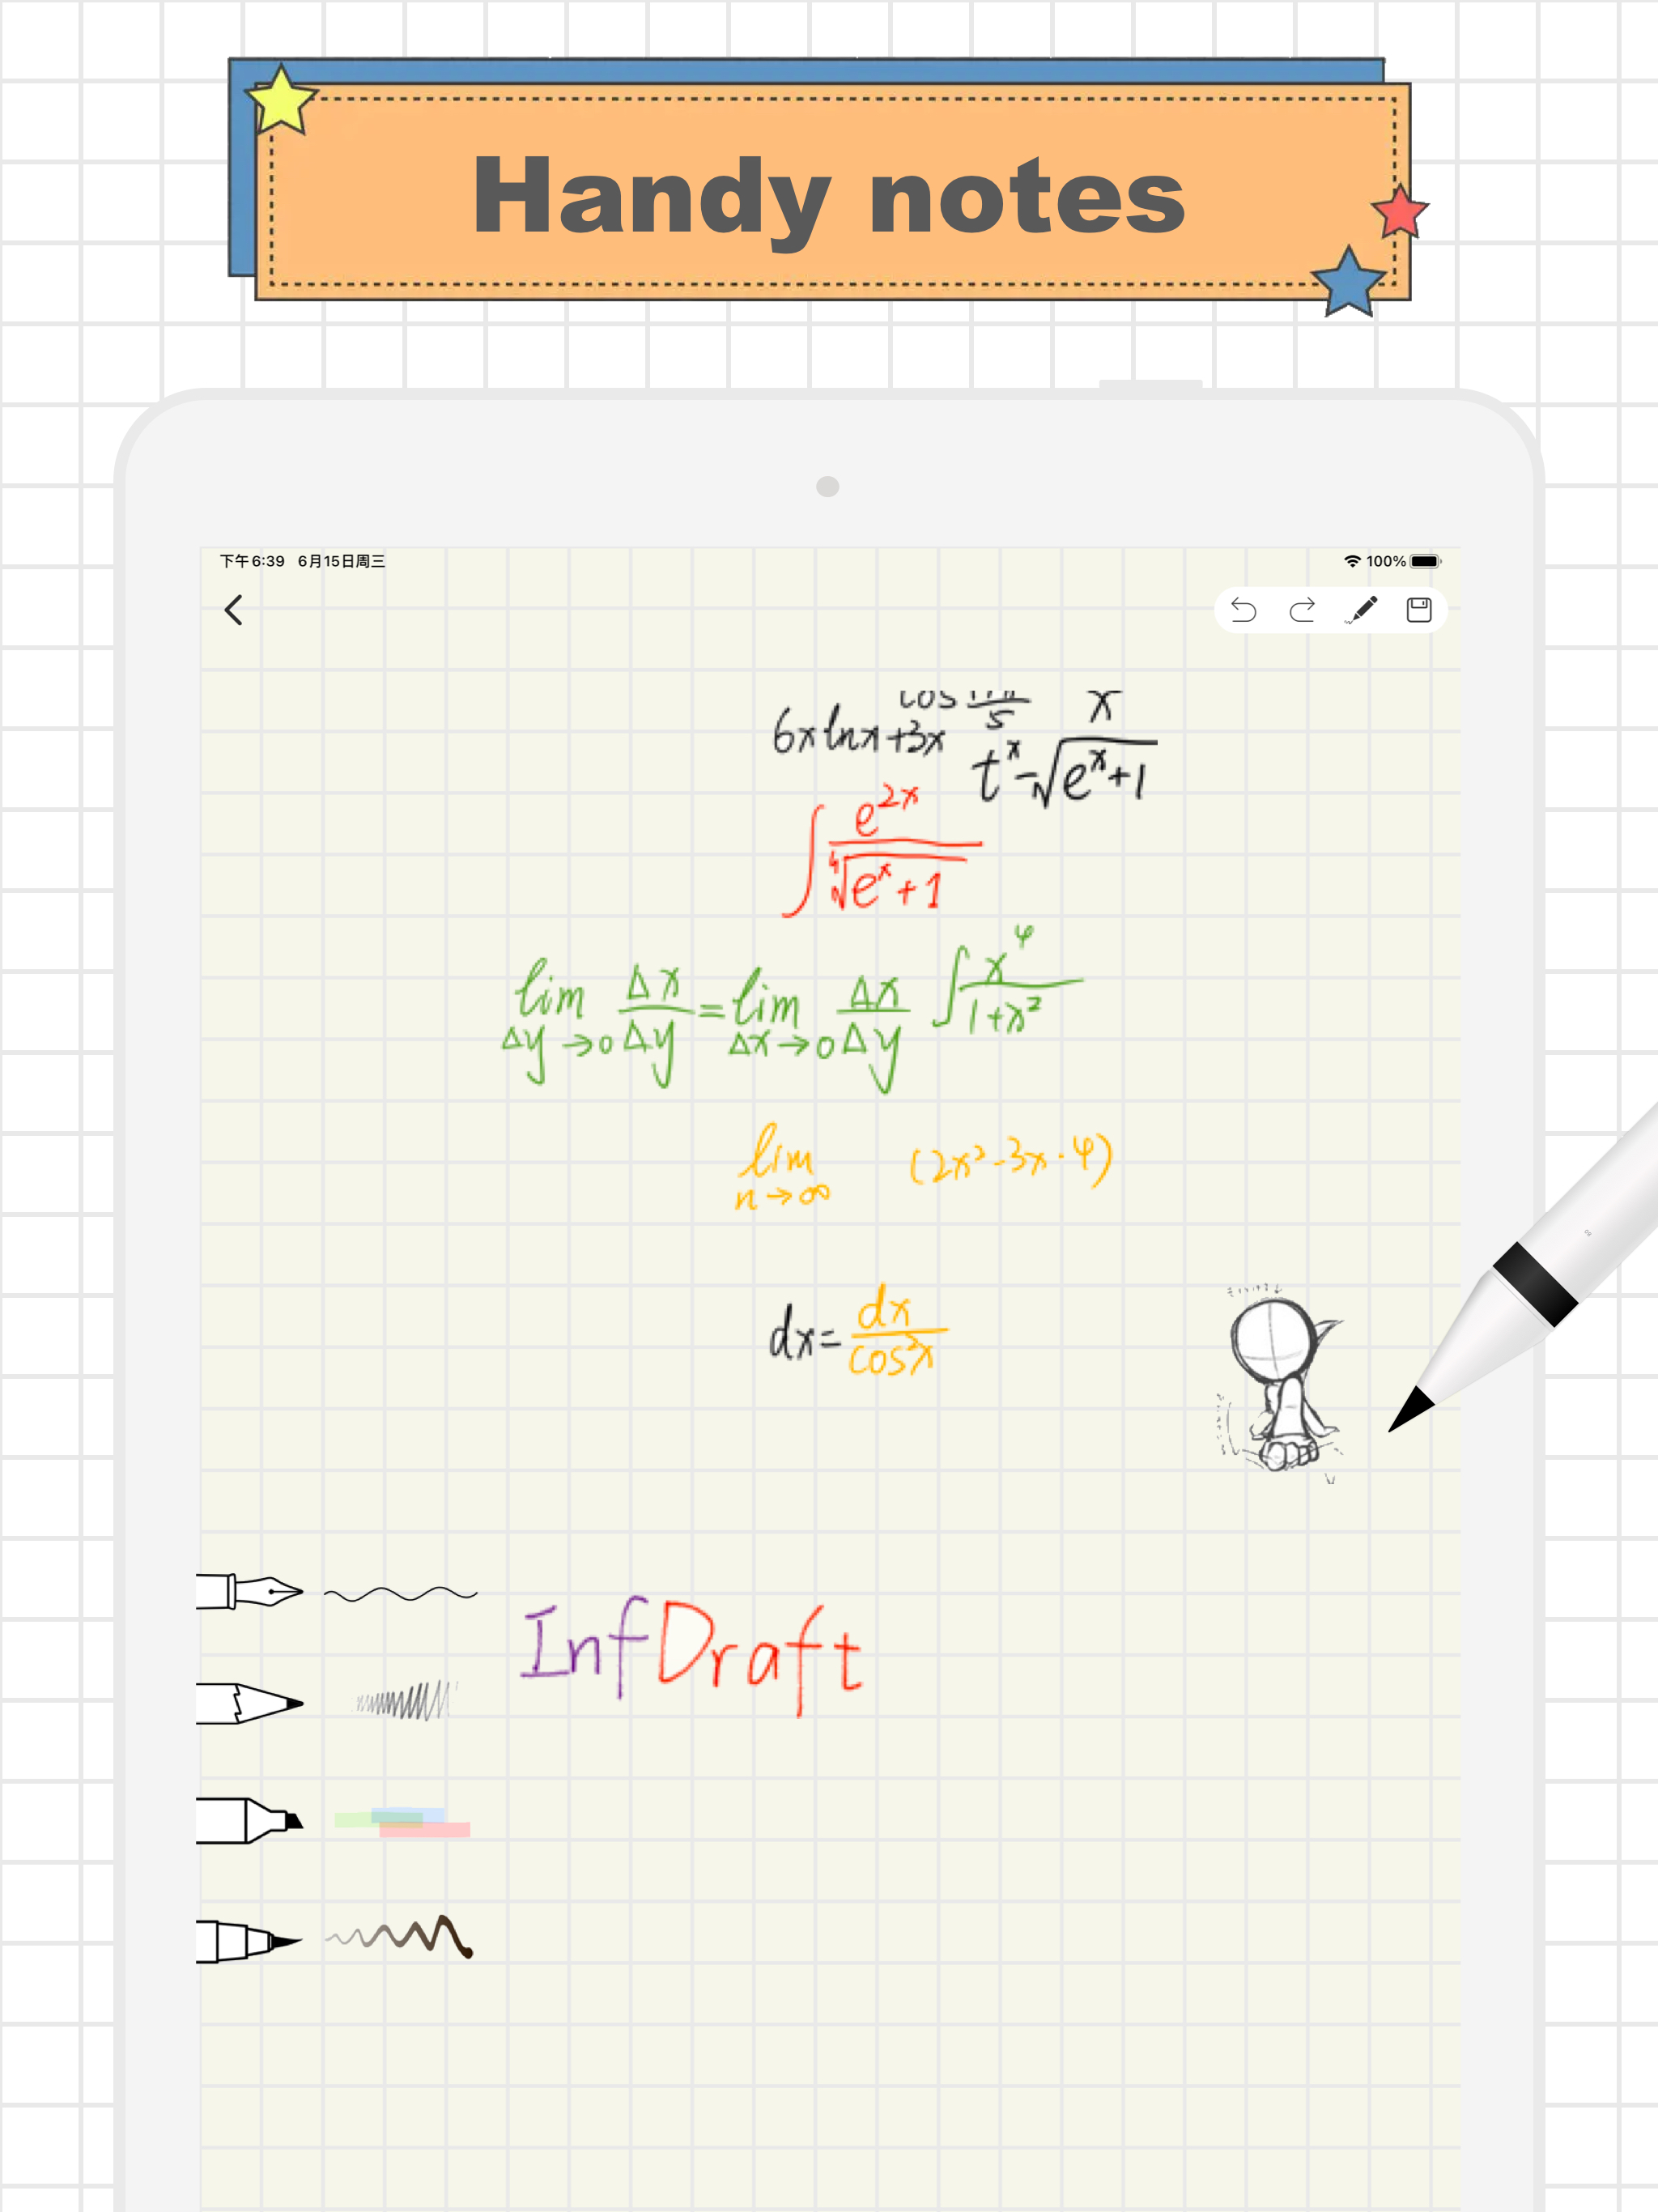 Handy notes
下午6:39 6月15日周三
100%
cos 5 x
6x lnx+3x
t^x-√(e^x+1)
∫ e^2x / ∜(e^x+1)
lim Δy→0 Δx/Δy = lim Δx→0 Δx/Δy ∫ x^4/(1+x²)
lim n→∞ (2x²-3x·4)
dx= dx/cos²x
InfDraft